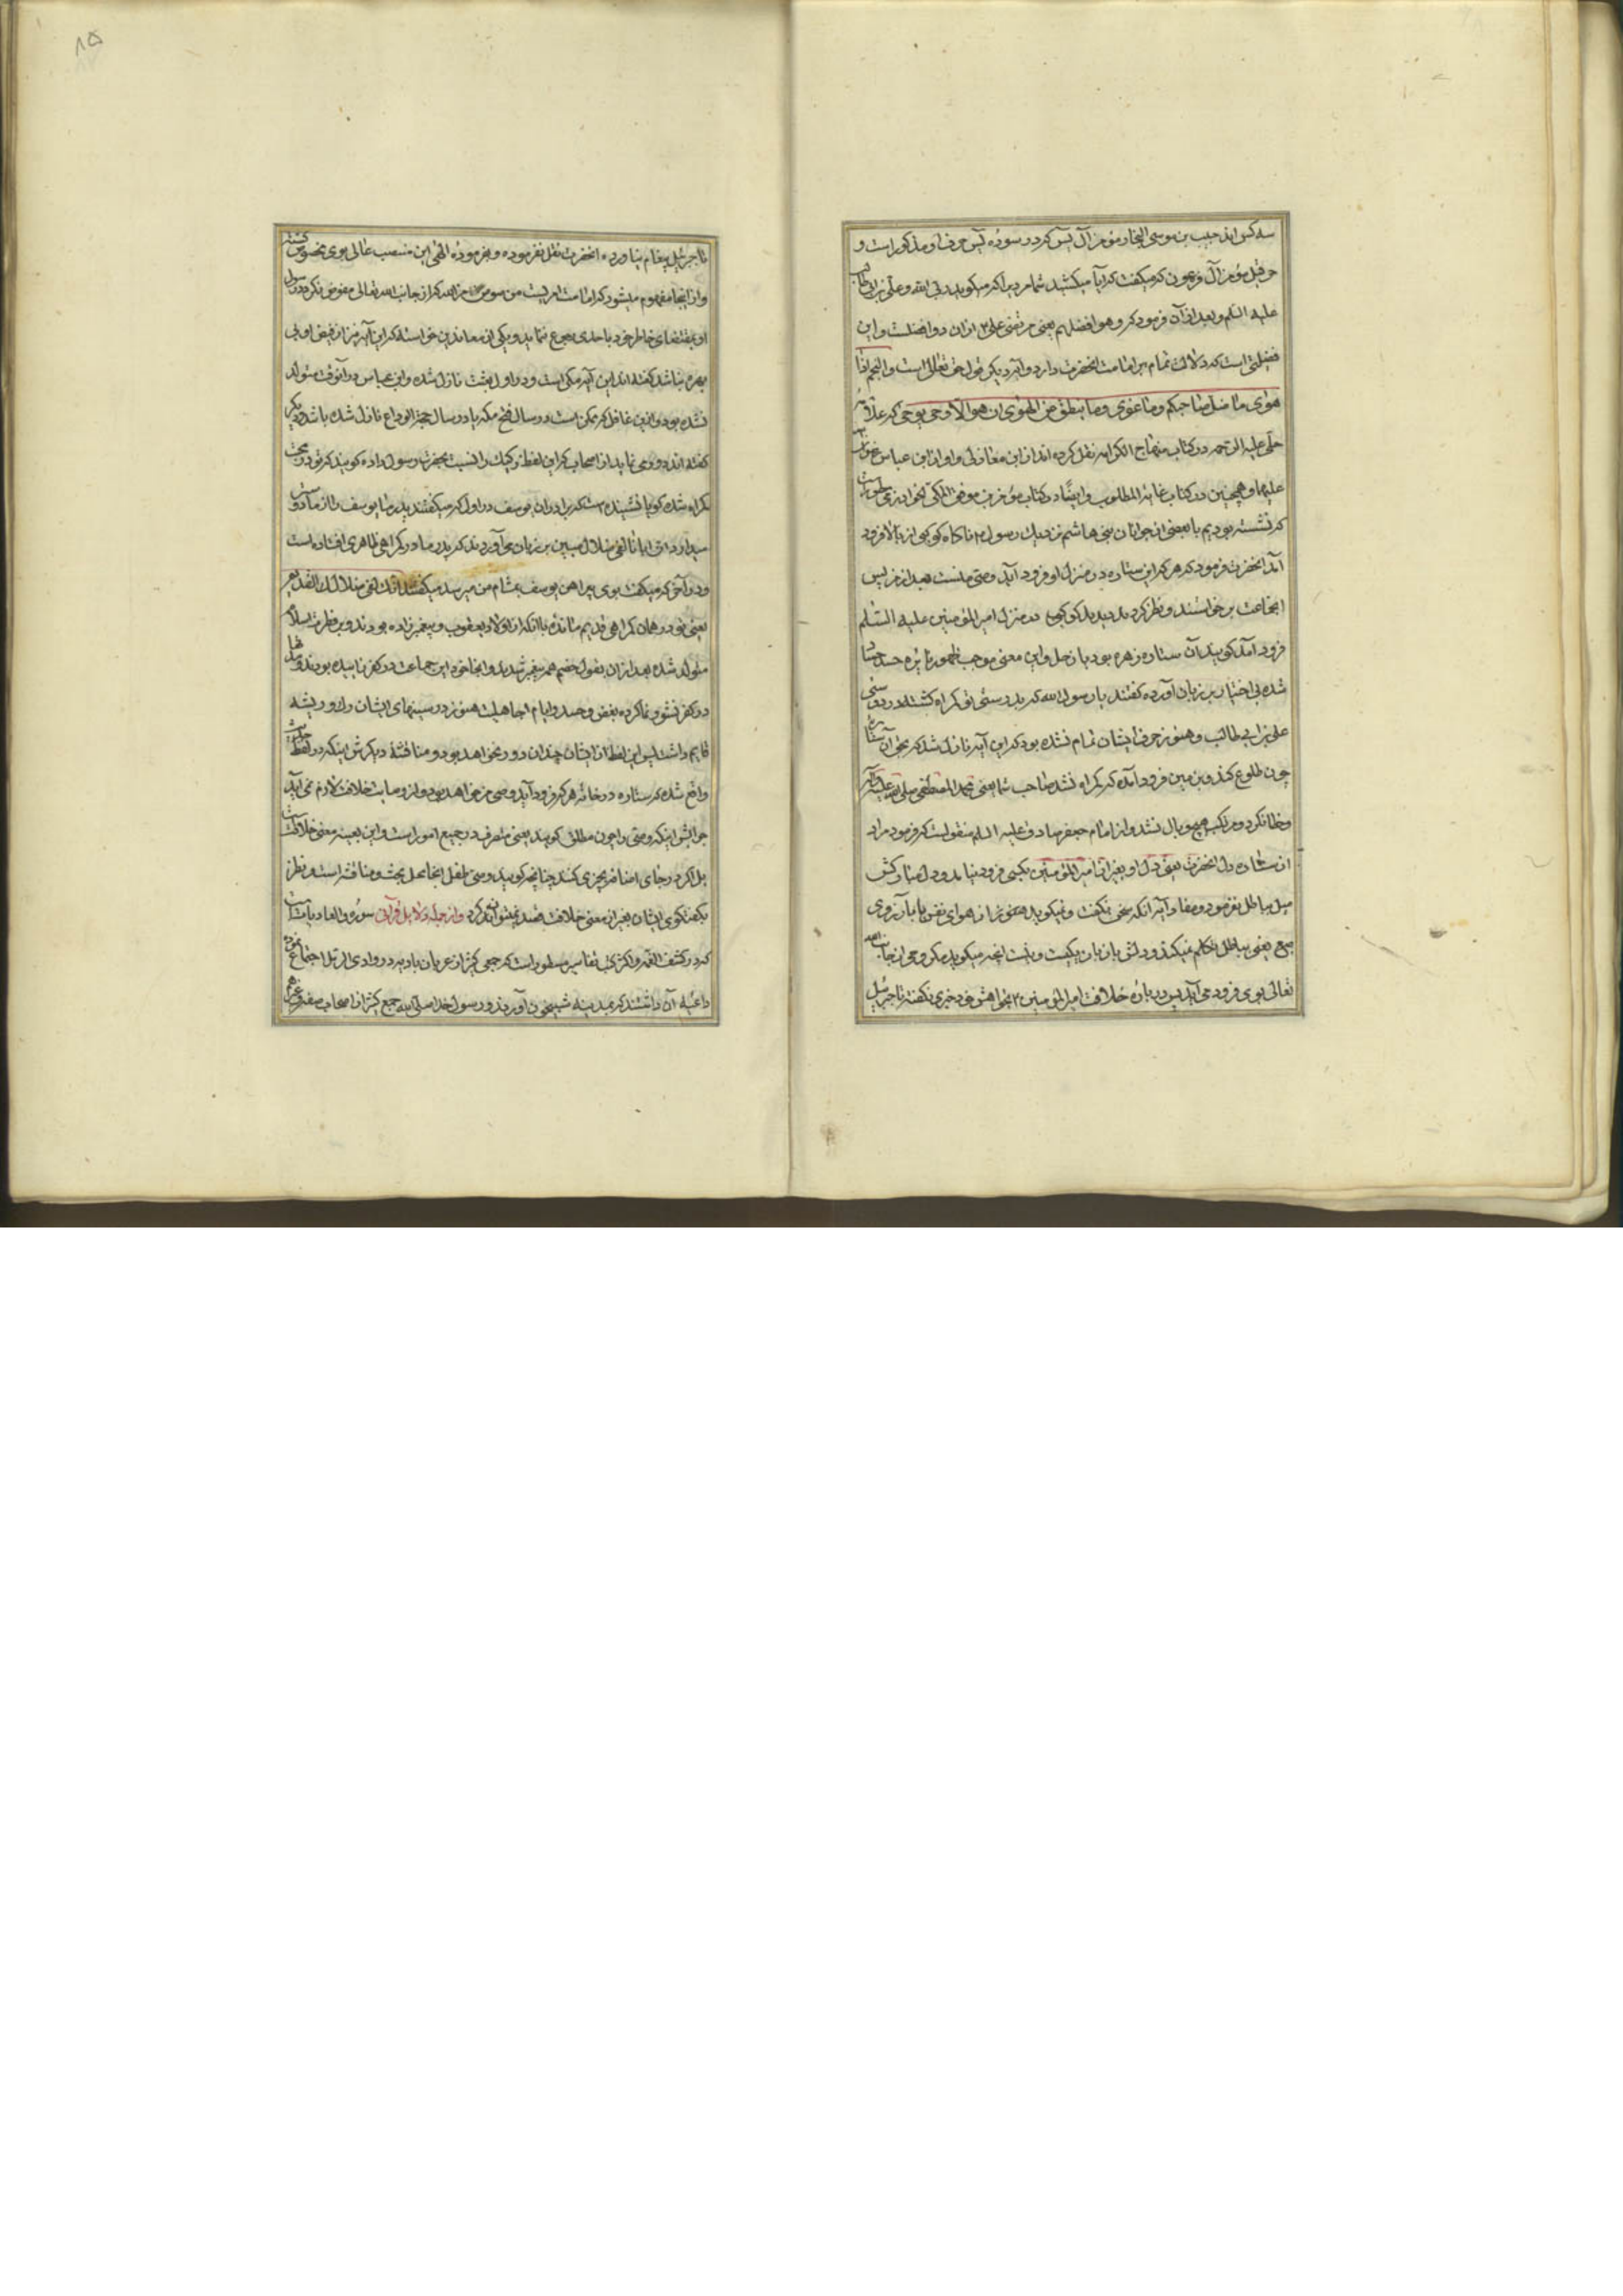 سه کس اند حبیب بن موسی النجار مؤمن آل یس که در سوره یس حرف او مذکور است و
حزقیل مؤمن آل فرعون که میکفت که آیا میکشید شما مردیرا که میکوید ربی الله و علی بن ابی طالب
علیه السلم و بعد از آن فرمود که و هو افضلهم یعنی مرتضی علی ازان دو افضلست و این
فضیلتی است که دلالت تمام بر امامت انحضرت دارد و آیه دیکر قول حق تعالی است و النجم اذا
هوی ما ضل صاحبکم و ما غوی و ما ینطق عن الهوی ان هو الا وحی یوحی که علامه
حلی علیه الرحمه در کتاب منهاج الکرامه نقل کرده اند از ابن مغازلی و او از ابن عباس
علیهما و همچنین در کتاب غایة المطلوب و ایضا در کتاب موفق المکی الخوارزمی مسطور است
که نشسته بودیم با بعضی از جوانان بنی هاشم نزدیک رسول ناکاه کوکبی از بالا فرود
آمد انحضرت فرمود که هر که این ستاره در منزل او فرود آید وصی منست بعد از من پس
انجماعت برخواستند و نظر کردند دیدند که کوکب در منزل امیر المؤمنین علیه السلم
فرود آمد کویند آن ستاره زهره بود یا زحل و این معنی موجب ظهور نایره حسد
شده بی اختیار بر زبان آورده کفتند یا رسول الله که بدرستی تو کمراه کشتهٔ در دوستی
علی بن ابی طالب و هنوز حرف ایشان تمام نشده بود که این آیه نازل شد که بحق آن ستاره
چون طلوع کند و بزمین فرود آمده که کمراه نشد صاحب شما یعنی محمد المصطفی صلی الله علیه و آله
و خطا نکرد و مرتکب هیچ وبال نشد و از امام جعفر صادق علیه السلم منقولست که فرمود مراد
از ستاره دل انحضرت یعنی دل او بغیر از امیر المؤمنین بکسی فرود نیامد و دل مبارکش
میل بباطل نفرمود و مفاد آیه آنکه سخن نکفت و نمیکوید هنوز از هوای نفس یا بآرزوی
طبع یعنی بباطل تکلم نمیکند و دلش با زبان یکیست و نیست انچه میکوید مکر وحی از جانب الله
تعالی بوی فرود می آید پس در باره خلافت امیر المؤمنین بخواهش خود خبری نکفته تا جبرئیل
تا جبرئیل پیغام نیاورده انحضرت نقل نفرموده و بفرموده الهی این منصب عالی بوی مخصوص کشته
و از اینجا مفهوم میشود که امامت امریست منصوص من الله که از جانب الله تعالی مفوض نکرده رسول
او بمقتضای خاطر خود با حدی رجوع نماید و یکی از معاندین خواسته که این آیه نیز از فیض او بی
بهره نباشد کفته اند این آیه مکی است و در اول بعثت نازل شده و ابن عباس در آنوقت متولد
نشده بود و ازین غافل که ممکن است در سال فتح مکه یا در سال حجة الوداع نازل شده باشد و دیکر
کفته اند دور می نماید از اصحاب که این لفظ رکیک را نسبت بحضرت رسول داده کویند که تو در محبت
کمراه شده کویا نشنیده است که برادران یوسف در اول که میکفتند پدر ما یوسف را از ما دوست
میدارد ان ابانا لفی ضلال مبین بر زبان می آوردند که پدر ما در کمراهی ظاهری افتاده است
و در آخر که میکفت بوی پیراهن یوسف بمشام من میرسد میکفتند انک لفی ضلالک القدیم
یعنی تو در همان کمراهی قدیم مانده با آنکه از اولاد یعقوب و پیغمبر زاده بودند و بر فطرت اسلام
متولد شده بعد از ان بقول خصم هم پیغمبر شدند و انجا خود این جماعت در کفر زاییده بودند و سالها
در کفر نشو و نما کرده بغض و حسد و ایام جاهلیت هنوز در سینهای ایشان رک و ریشه
قایم داشت پس این لفظ از ایشان چندان دور نخواهد بود و مناقشهٔ دیکرش اینکه در لفظ حدیث
واقع شده که ستاره در خانه هر که فرود آید وصی من خواهد بود و از وصایت خلافت لازم نمی آید
جوابش اینکه وصی را چون مطلق کویند یعنی متصرف در جمیع امور است و این بعینه معنی خلافت است
بل اکر در جای اضافه بچیزی کنند چنانچه کویند وصی طفل انجا محل بحث و مناقشه است و نظر
بکفتکوی ایشان بغیر از معنی خلافت قصد نمیتوانند کرد و از جمله دلایل قرآنی سوره و العادیات است
که در کشف الغمه و اکثر کتب تفاسیر مسطور است که جمعی کثیر از عربان بادیه در وادی الرمل اجتماع نموده
داعیه آن داشتند که بمدینه شبیخون آورند و رسول خدا صلی الله جمع کثیر از اصحاب صفه و غیرهم
۸۵